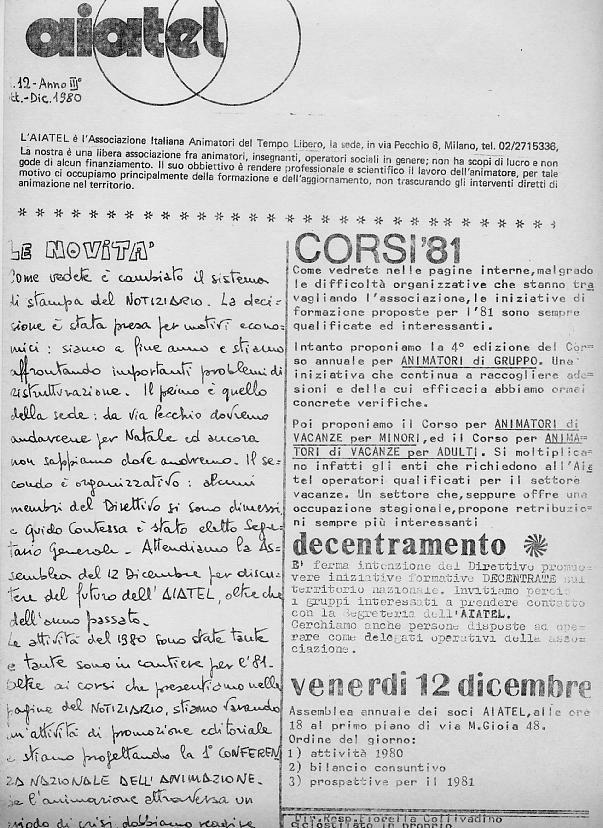 aiatel
.12 - Anno III°
tt.-Dic. 1980
L'AIATEL è l'Associazione Italiana Animatori del Tempo Libero, la sede, in via Pecchio 6, Milano, tel. 02/2715336,
La nostra è una libera associazione fra animatori, insegnanti, operatori sociali in genere; non ha scopi di lucro e non
gode di alcun finanziamento. Il suo obbiettivo è rendere professionale e scientifico il lavoro dell'animatore, per tale
motivo ci occupiamo principalmente della formazione e dell'aggiornamento, non trascurando gli interventi diretti di
animazione nel territorio.
* * * * * * * * * * * * * * * * * * * * * * * * * * * * * * * * *
LE NOVITA'
Come vedete è cambiato il sistema
di stampa del NOTIZIARIO. La deci-
sione è stata presa per motivi econo-
mici: siamo a fine anno e stiamo
affrontando importanti problemi di
ristrutturazione. Il primo è quello
della sede: da via Pecchio dovremo
andarcene per Natale ed ancora
non sappiamo dove andremo. Il se-
condo è organizzativo: alcuni
membri del Direttivo si sono dimessi
e Guido Contessa è stato eletto Segre-
tario Generale. Attendiamo la As-
semblea del 12 Dicembre per discu-
tere del futuro dell'AIATEL, oltre che
dell'anno passato.
Le attività del 1980 sono state tante
e tante sono in cantiere per l'81.
Oltre ai corsi che presentiamo nelle
pagine del NOTIZIARIO, stiamo varando
un'attività di promozione editoriale
e stiamo progettando la 1° CONFEREN
ZA NAZIONALE DELL'ANIMAZIONE.
Se l'animazione attraversa un
periodo di crisi dobbiamo reagire
CORSI'81
Come vedrete nelle pagine interne,malgrado
le difficoltà organizzative che stanno tra
vagliando l'associazione,le iniziative di
formazione proposte per l'81 sono sempre
qualificate ed interessanti.
Intanto proponiamo la 4° edizione del Cor
so annuale per ANIMATORI di GRUPPO. Una
iniziativa che continua a raccogliere ade-
sioni e della cui efficacia abbiamo ormai
concrete verifiche.
Poi proponiamo il Corso per ANIMATORI di
VACANZE per MINORI,ed il Corso per ANIMA-
TORI di VACANZE per ADULTI. Si moltiplica-
no infatti gli enti che richiedono all'Aia
tel operatori qualificati per il settore
vacanze. Un settore che,seppure offre una
occupazione stagionale,propone retribuzio-
ni sempre più interessanti
decentramento
E' ferma intenzione del Direttivo promuo-
vere iniziative formative DECENTRATE sul
territorio nazionale. Invitiamo perciò
i gruppi interessati a prendere contatto
con la segreteria dell'AIATEL.
Cerchiamo anche persone disposte ad ope-
rare come delegati operativi della asso-
ciazione.
venerdi 12 dicembre
Assemblea annuale dei soci AIATEL,alle ore
18 al primo piano di via M.Gioia 48.
Ordine del giorno:
1) attività 1980
2) bilancio consuntivo
3) prospettive per il 1981
Dir.Resp.Fiorella Collivadino
ciclostilato in proprio